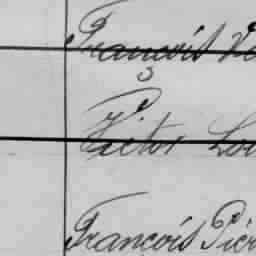 François
Victor Lou
François Pier